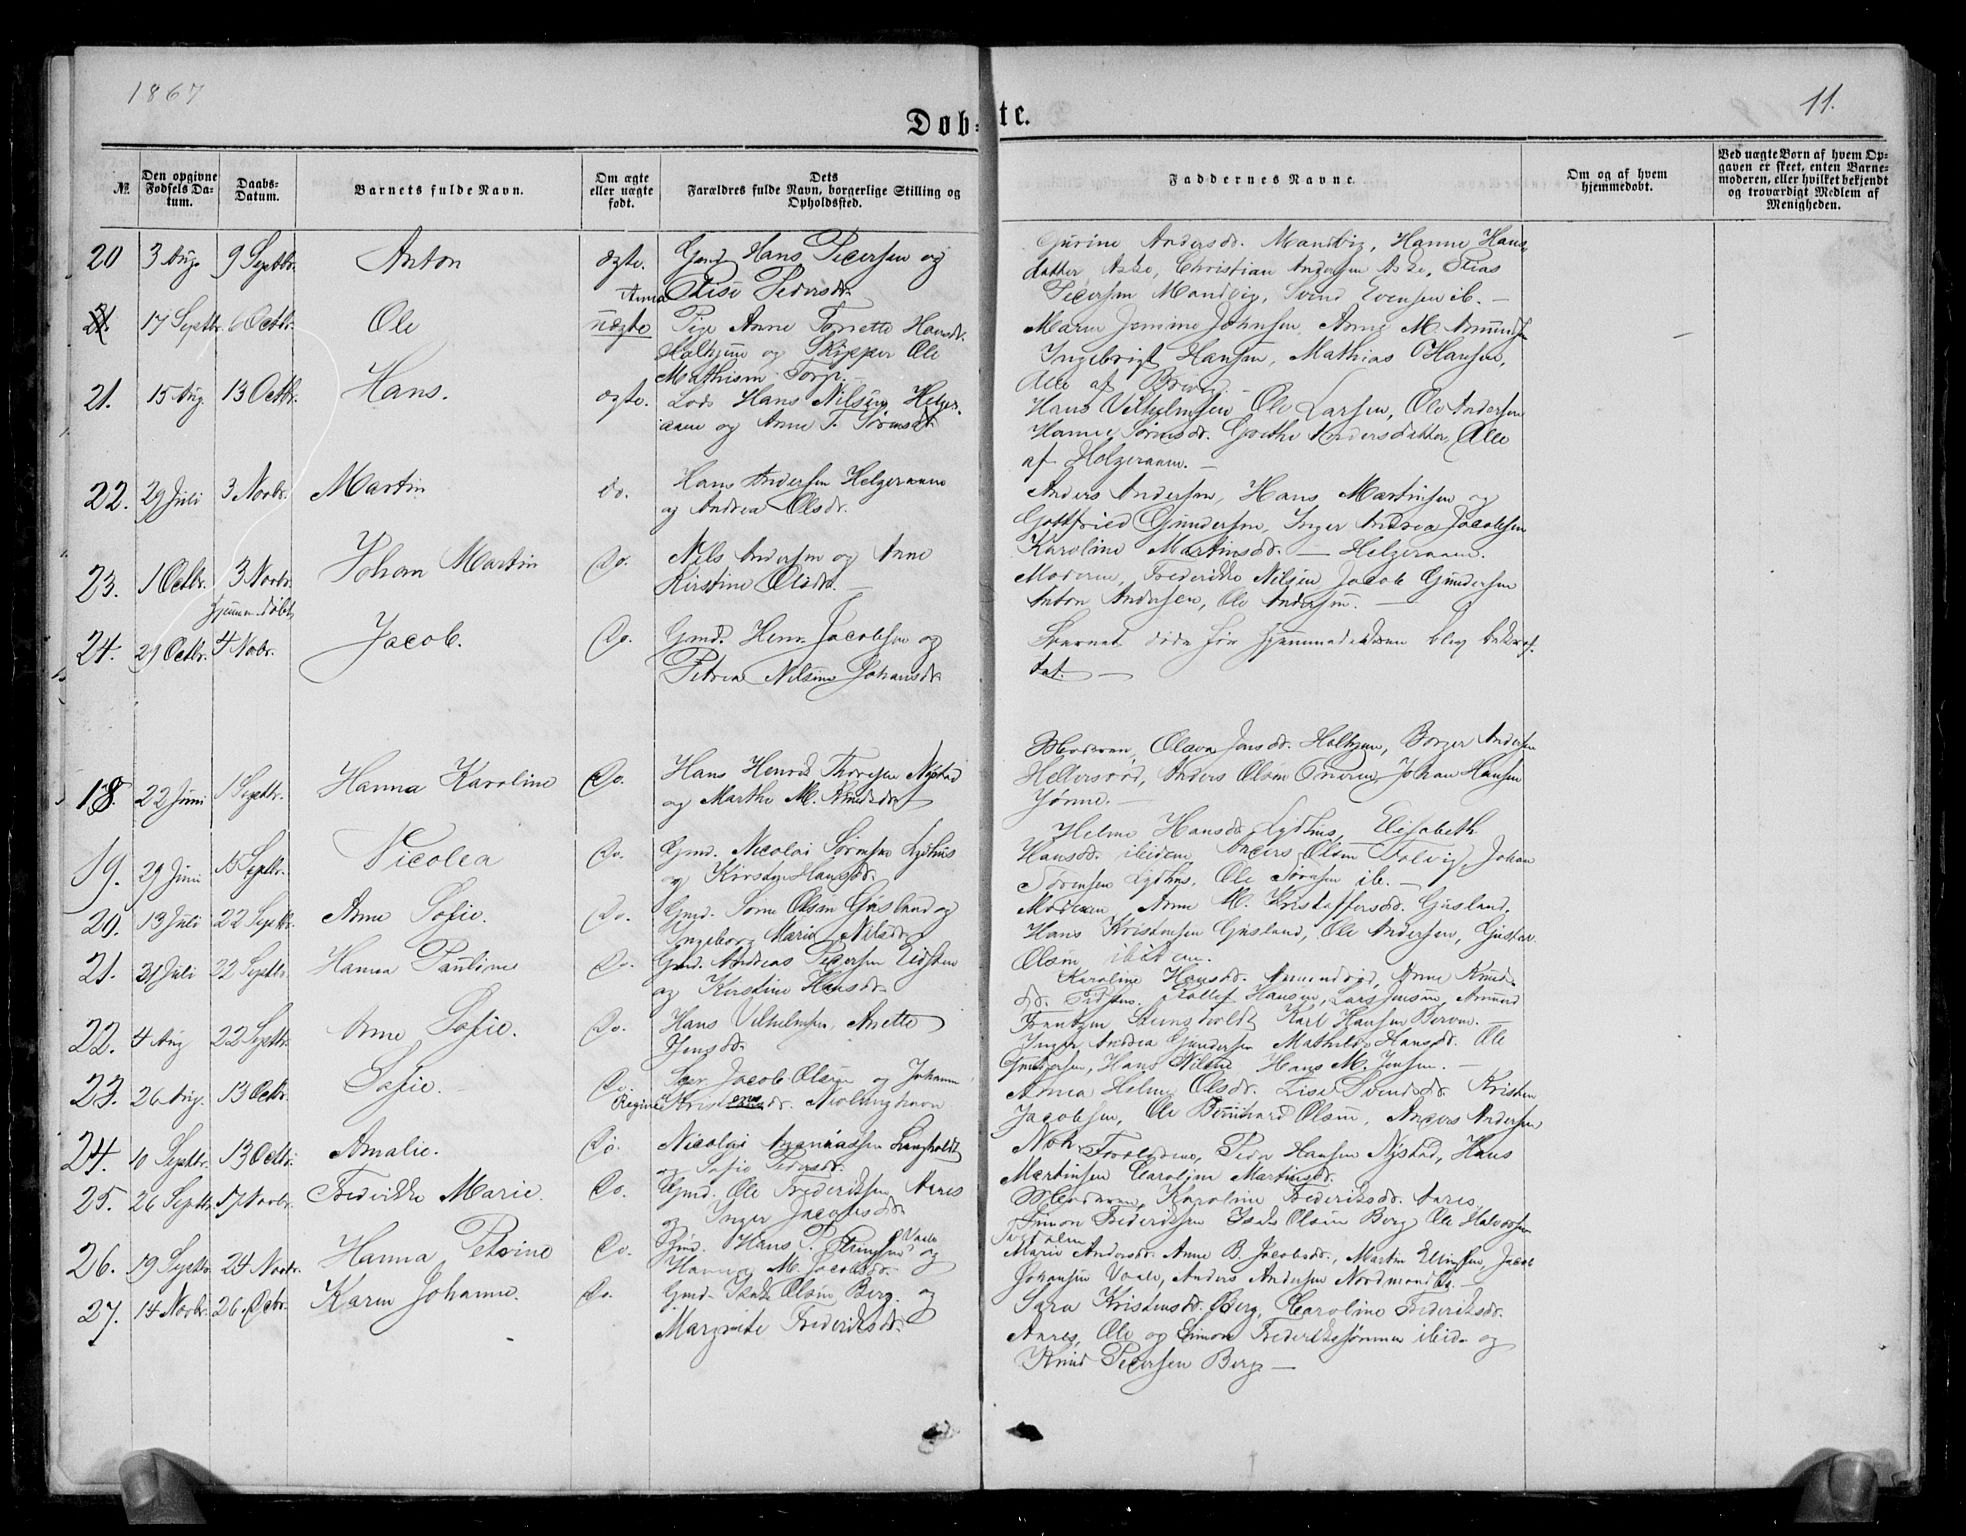 1867
11.
Døb-te.
№.
Den opgivne Fødsels Da-tum.
Daabs-Datum.
Barnets fulde Navn.
Om ægte eller uægte født.
Dets Forældres fulde Navn, borgerlige Stilling og Opholdssted.
Faddernes Navne.
Om og af hvem hjemmedøbt.
Ved uægte Born af hvem Op-gaven er skeet, enten Barne-moderen, eller hvilket bekjendt og troværdigt Medlem af Menigheden.
20 3 Aug. 9 Septbr. Anton ægte. Gmd Hans Pedersen og
Anna Elise Pedersdr.
Gurine Andersdr. Mandvig, Hanne Hans-
datter Aske, Christian Andersen Aske, Elias
Pedersen Mandvig, Svend Evensen ib. —
21. 17 Septbr. 6 Octbr. Ole uægte Pige Anne Tonette Hansdr.
og Skipper Ole
Mathisen Torp. —
Maren Jensine Johnsen, Anne M. Amundsen
Ingebrigt Hansen, Mathias Hansen,
Alle af —
21. 15 Aug. 13 Octbr. Hans. ægte. Lods Hans Nilsen Helger-
aaen og Anne T. Sørensdr.
Hans Vilhelmsen Ole Larsen, Ole Andersen
Hanne Sørensdr. Andersdatter, Alle
af Helgeraaen. —
22. 29 Juli 3 Novbr. Martin do. Hans Andersen Helgeraaen
og Andrea Olsdr.
Anders Andersen, Hans Martinsen og
Gottfried Gundersen, Inger Andrea Jacobsen
Karoline Martinsdr. — Helgeraaen.
23. 1 Octbr. 3 Novbr. Johan Martin Do. Nils Andersen og Anne
Kirstine Olsdr. —
Moderen, Frederikke Nilsen, Jacob Gundersen
Anton Andersen, Ole Andersen. —
hjemmedøbt
24. 29 Octbr. 4 Novbr. Jacob. Do. Gmd. Jacobsen og
Petrea Nilsine Johansdr.
Barnet døde før Hjemmedaaben blev bekræf-
tet. —
18. 22 Juni 1 Septbr. Hanna Karoline Do. Hans Henrik Thorsen Nystad
og Marthe M. Knudsdr.
Moderen, Olava Jensdr. Holtzen, Andersen
Anders Olsen Johan Hansen
—
19. 29 Juni 15 Septbr. Nicolea Do. Gmd. Nicolai Sørensen Lydhus
og Kirsten Hansdr.
Helene Hansdr. Lydhus, Elisabeth
Hansdr. ibidem Anders Olsen Johan
Sørensen Lydhus, Ole Sørensen ib. —
20. 13 Juli 22 Septbr. Anne Sofie. Do. Gmd. Sørne Olsen Gusland og
Ingeborg Marie Nilsdr.
Moderen Anne M. Kristoffersdr. Gusland.
Hans Kristensen Gusland, Ole Andersen, Gustav
Olsen ibidem.
21. 31 Juli 22 Septbr. Hanna Pauline Do. Gmd. Andreas Pedersen Eidsten
og Kirstine Hansdr.
Karoline Hansdr. Anne Knuds-
dr. Eidsten. Rollef Hansen, Lars Jensen, Amund
22. 4 Aug 22 Septbr. Anne Sofie. Do. Hans Vilhelmsen, Anette
Jensdr.
Frantzen Karl Hansen Bervm. —
Inger Andrea Gundersen Mathilde Hansdr. Ole
Gundersen, Hans Nilsen Hans M. Jensen. —
23. 26 Aug. 13 Octbr. Sofie. Do. Jacob Olsen og Johanne
Regine Kristensdr. Nevlunghavn
Anna Helene Olsdr. Lise Svendsdr. Kristen
Jacobsen, Ole Bernhard Olsen, Anders Andersen
24. 10 Septbr. 13 Octbr. Amalie. Do. Nicolai Ananiassen Langholdt
og Sofie Pedersdr.
Peder Hansen Nystad, Hans
Martinsen Caroline Martinsdr.
25. 26 Septbr. 17 Novbr. Frederikke Marie. Do. Gmd. Ole Frederiksen Anres
og Inger Jacobsdr.
Moderen, Karoline Frederiksdr. Anres,
Simon Frederiksen Isak Olsen Berg, Ole Halvorsen
26. 19 Septbr. 24 Novbr. Hanna Petrine Do. Gmd. Hans P. Vaale og
Hanna M. Jacobsdr.
Marie Andersdr. Anne B. Jacobsdr., Martin Ellingsen, Jacob
Johansen Vaale, Anders Andersen —
27. 14 Novbr. 26 Decbr. Karen Johanne. Do. Gmd. Isak Olsen Berg. og
Margrete Frederiksdr.
Sara Kristensdr. Berg, Caroline Frederiksdr.
Anres, Ole og Simon Frederiksønner ibid. og
Knud Pedersen Berg. —